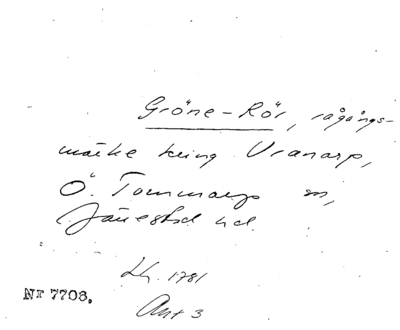 Gröne-Rör, rågångs-
märke kring Vranarp,
Ö. Tommarps sn,
Järrestad hd.
Lh. 1781
Akt 3
Nr 7708.